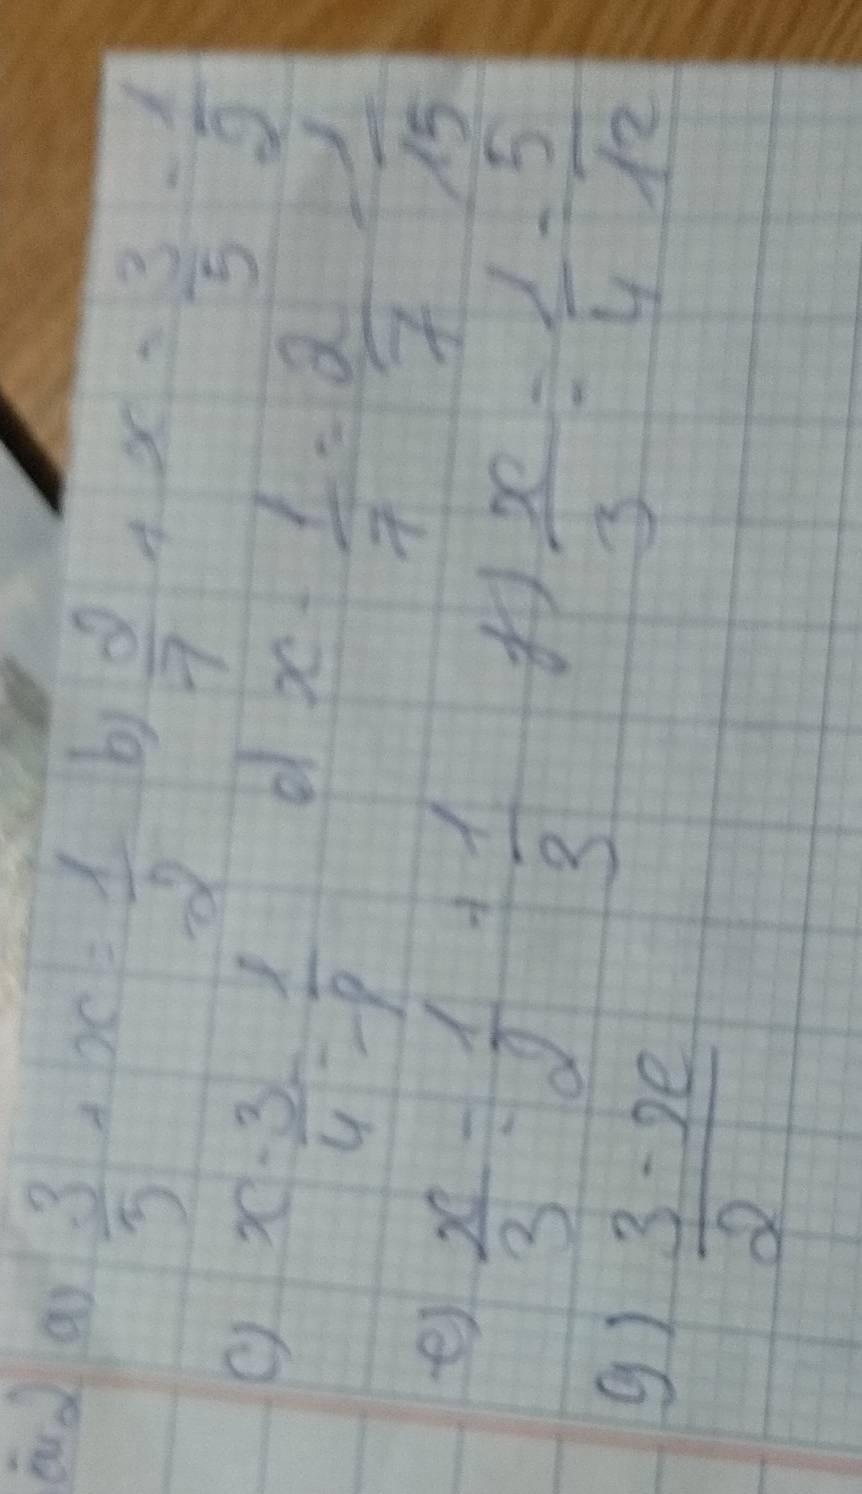 Bài 2 a) 3/5 + x = 1/2 b) 2/7 + x = 3/5 - 1/2
c) x - 3/4 = 1/9 d x - 1/7 = 2/7 - 1/15
e) x/3 = 1/2 + 1/3 f) x/3 = 1/4 - 5/12
g) 3 - x/2